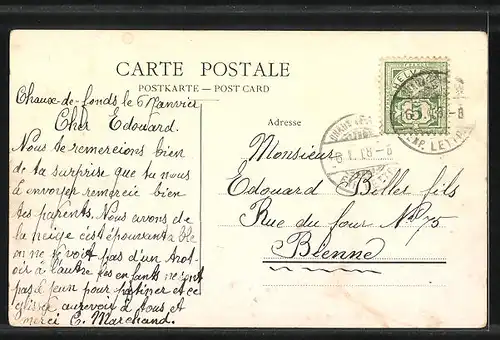 CARTE POSTALE
POSTKARTE — POST CARD
Chaux-de-fonds le 6 Janvier
Cher Edouard.
Nous te remercions bien
de ta surprise que tu nous
a envoyer remercie bien
tes parents. Nous avons de
la neige c'est épouvantable
on ne se voit pas d'un trot-
oir à l'autre les enfants ne sont
pas à jeun pour patiner et ce
glisser aurevoir à tous et
merci E. Marchand.
Adresse
Monsieur
Edouard Billet fils
Rue du four No 75
Bienne
5